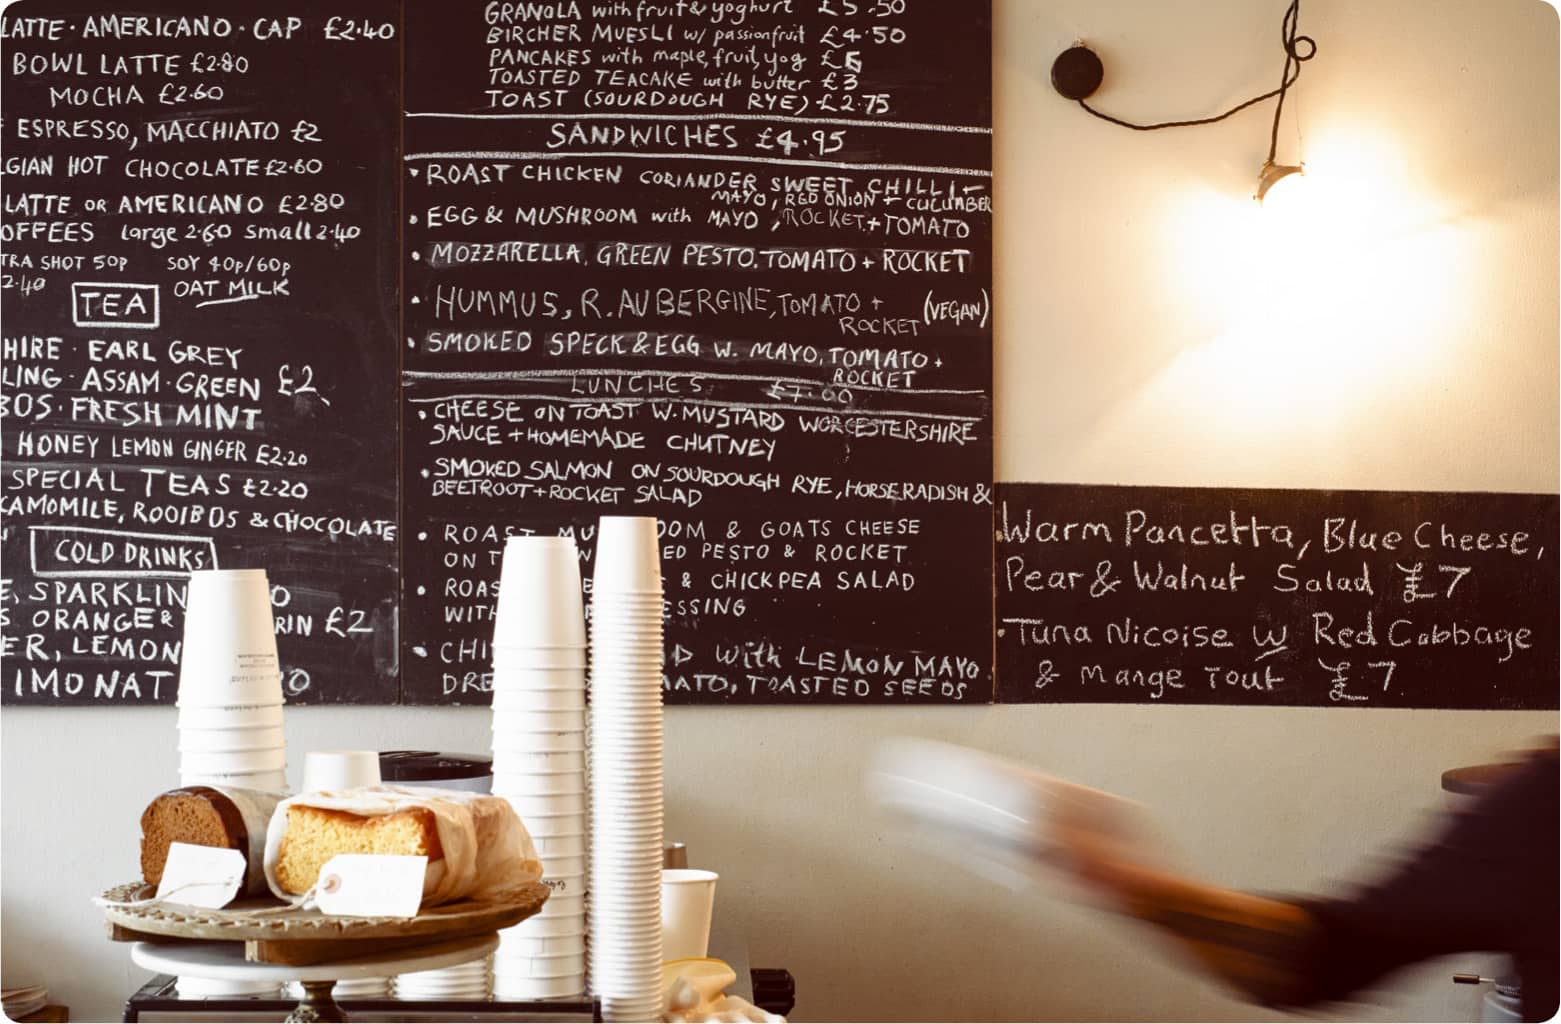 LATTE · AMERICANO · CAP £2.40
BOWL LATTE £2.80
MOCHA £2.60
ESPRESSO, MACCHIATO £2
LGIAN HOT CHOCOLATE £2.60
LATTE OR AMERICANO £2.80
OFFEES large 2.60 small 2.40
TRA SHOT 50p SOY 40p/60p
2.40 OAT MILK
TEA
HIRE · EARL GREY
LING · ASSAM · GREEN £2
BOS · FRESH MINT
HONEY LEMON GINGER £2.20
SPECIAL TEAS £2.20
CAMOMILE, ROOIBOS & CHOCOLATE
COLD DRINKS
E, SPARKLIN
S ORANGE & RIN £2
ER, LEMON
IMONAT
GRANOLA with fruit & yoghurt £5.50
BIRCHER MUESLI w/ passionfruit £4.50
PANCAKES with maple, fruit, yog £6
TOASTED TEACAKE with butter £3
TOAST (SOURDOUGH RYE) £2.75
SANDWICHES £4.95
• ROAST CHICKEN CORIANDER SWEET CHILLI
MAYO, RED ONION + CUCUMBER
• EGG & MUSHROOM with MAYO, ROCKET + TOMATO
• MOZZARELLA, GREEN PESTO, TOMATO + ROCKET
• HUMMUS, R. AUBERGINE, TOMATO + (VEGAN)
ROCKET
• SMOKED SPECK & EGG W. MAYO, TOMATO +
ROCKET
LUNCHES £7.00
• CHEESE ON TOAST W. MUSTARD WORCESTERSHIRE
SAUCE + HOMEMADE CHUTNEY
• SMOKED SALMON ON SOURDOUGH RYE, HORSERADISH &
BEETROOT + ROCKET SALAD
• ROAST MU OOM & GOATS CHEESE
ON T W ED PESTO & ROCKET
• ROAS & CHICKPEA SALAD
WITH ESSING
• CHI D with LEMON MAYO
DRE MATO, TOASTED SEEDS
• Warm Pancetta, Blue Cheese,
Pear & Walnut Salad £7
• Tuna Nicoise w Red Cabbage
& Mange Tout £7